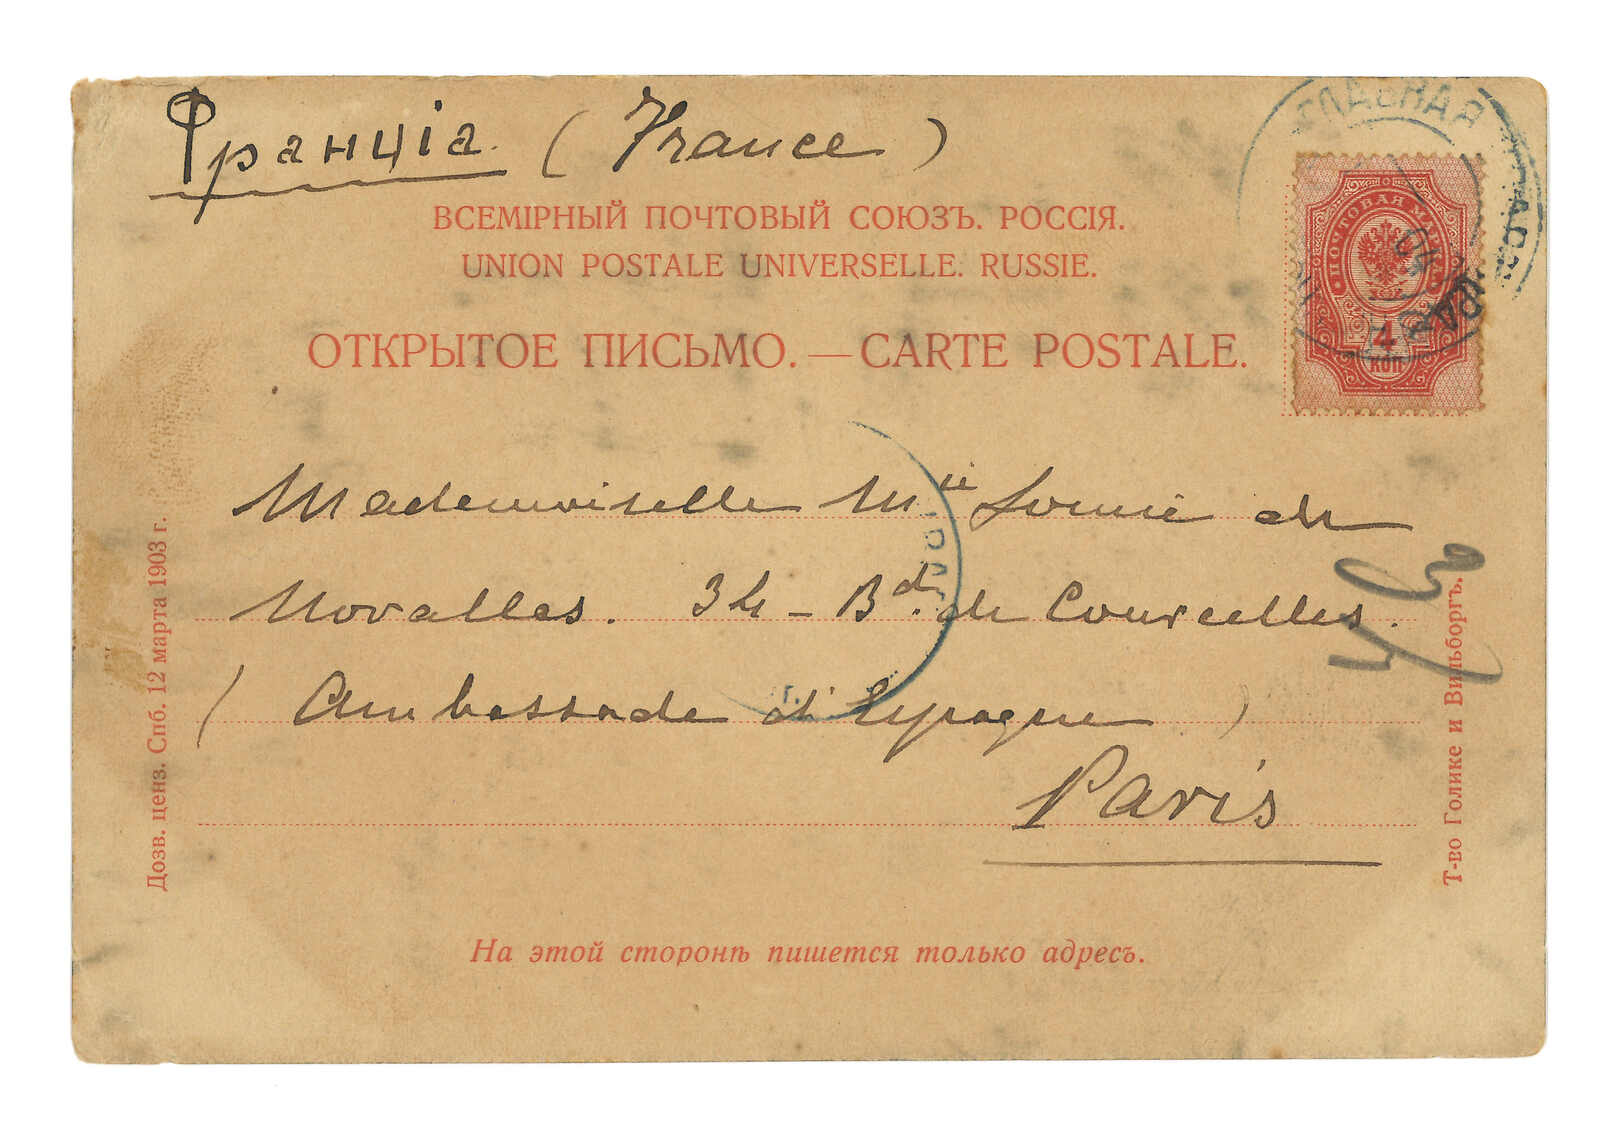 Франція. (France)
ВСЕМІРНЫЙ ПОЧТОВЫЙ СОЮЗЪ. РОССІЯ.
UNION POSTALE UNIVERSELLE. RUSSIE.
ОТКРЫТОЕ ПИСЬМО. — CARTE POSTALE.
ГЛАВНАЯ
ПОЧТОВАЯ МАРКА
4
КОП
Mademoiselle Mlle Louise de
Novallas. 34 - Bd. de Courcelles.
(Ambassade d'Espagne)
Paris
Дозв. ценз. Спб. 12 марта 1903 г.
Т-во Голике и Вильборгъ.
На этой сторонѣ пишется только адресъ.